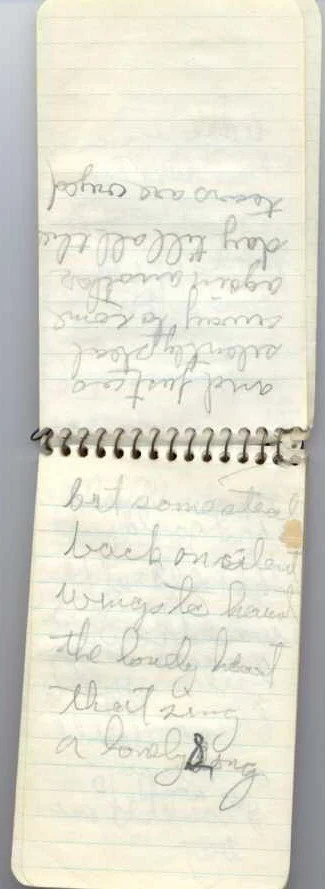 but some steal
back on silent
wings to haunt
the lonely heart
that sing
a lonely song
and just as
silently steal
away to come
again another
day till all the
tears are cryed